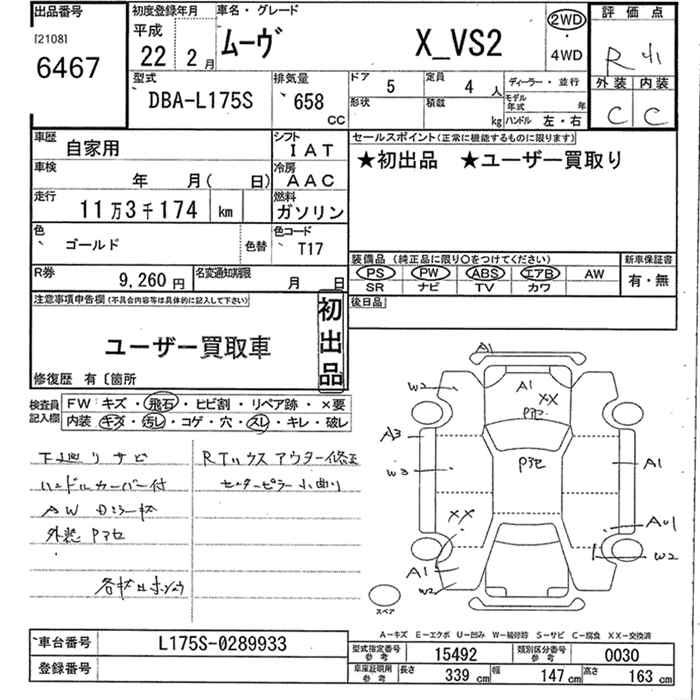 出品番号
[2108]
6467
初度登録年月
平成
22年 2月
車名・グレード
ムーヴ X_VS2
2WD
・
4WD
評価点
R
外装 内装
C C
型式
DBA-L175S
排気量
658
CC
ドア 5
形状
定員 4 人
積載 kg
ディーラー・並行
モデル年式 年
ハンドル 左・右
車歴 自家用
シフト IAT
車検 年 月( 日)
冷房 AAC
走行 11万3千174 km
燃料 ガソリン
色 ゴールド 色替
色コード T17
R券 9,260円
名変通知期限 月 日
セールスポイント(正常に機能するものに限ります)
★初出品 ★ユーザー買取り
装備品 (純正品に限り○をつけてください)
PS PW ABS エアB AW
SR ナビ TV カワ
新車保証書
有・無
後日品
注意事項申告欄(不具合内容等は具体的に記入して下さい)
ユーザー買取車
初出品
修復歴 有〔箇所
検査員記入欄
FW キズ・飛石・ヒビ割・リペア跡・×要
内装 キズ・汚レ・コゲ・穴・スレ・キレ・破レ
下廻りサビ
ハンドルカーバー付
外装 Pヌセ
A1
W2
A1
XX
A3
W3
A1
XX
AU1
W2
A1
W2
スペア
A-キズ E-エクボ U-凹み W-補修跡 S-サビ C-腐食 XX-交換済
車台番号 L175S-0289933
登録番号
型式指定番号 参考 15492
類別区分番号 参考 0030
車庫証明用 参考 長さ 339 cm 幅 147 cm 高さ 163 cm